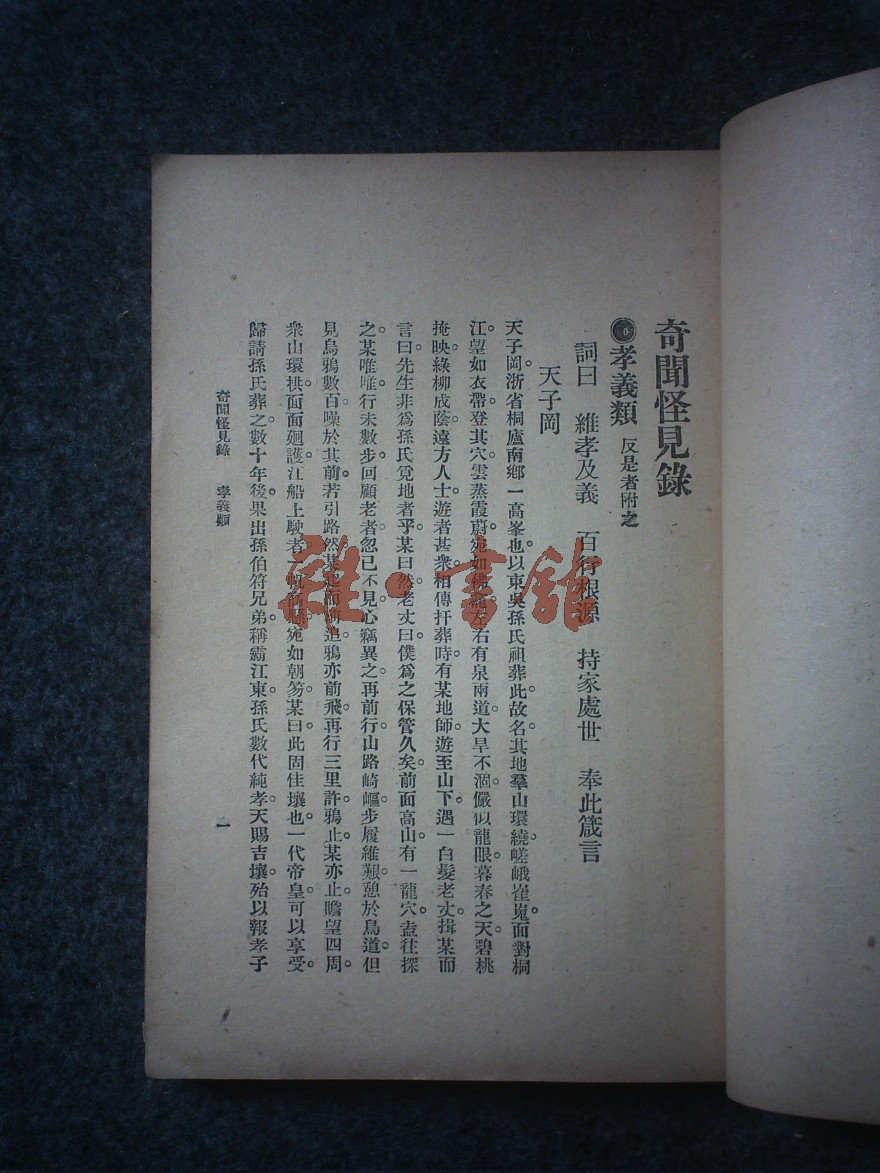 奇聞怪見錄
孝義類 反是者附之
詞曰 維孝及義 百行根源 持家處世 奉此箴言
天子岡
天子岡。浙省桐廬南鄉一高峯也。以東吳孫氏祖葬此。故名。其地羣山環繞。嵯峨崔嵬。面對桐
江。望如衣帶。登其穴。雲蒸霞蔚。宛如佛龕。左右有泉兩道。大旱不涸。儼似龍眼。暮春之天。碧桃
掩映。綠柳成蔭。遠方人士。遊者甚衆。相傳扞葬時。有某地師。遊至山下。遇一白髮老丈。揖某而
言曰。先生非爲孫氏覓地者乎。某曰然。老丈曰。僕爲之保管久矣。前面高山。有一龍穴。盍往探
之。某唯唯。行未數步。回顧老者。忽已不見。心竊異之。再前行。山路崎嶇。步履維艱。憩於鳥道。但
見烏鴉數百。噪於其前。若引路然。某起而前追。鴉亦前飛。再行三里許。鴉止。某亦止。瞻望四周。
衆山環拱。面面廻護。江船上駛者。一帆高懸。宛如朝笏。某曰。此固佳壤也。一代帝皇。可以享受。
歸請孫氏葬之。數十年後。果出孫伯符兄弟。稱霸江東。孫氏數代純孝。天賜吉壤。殆以報孝子
奇聞怪見錄 孝義類
一
雜·書館